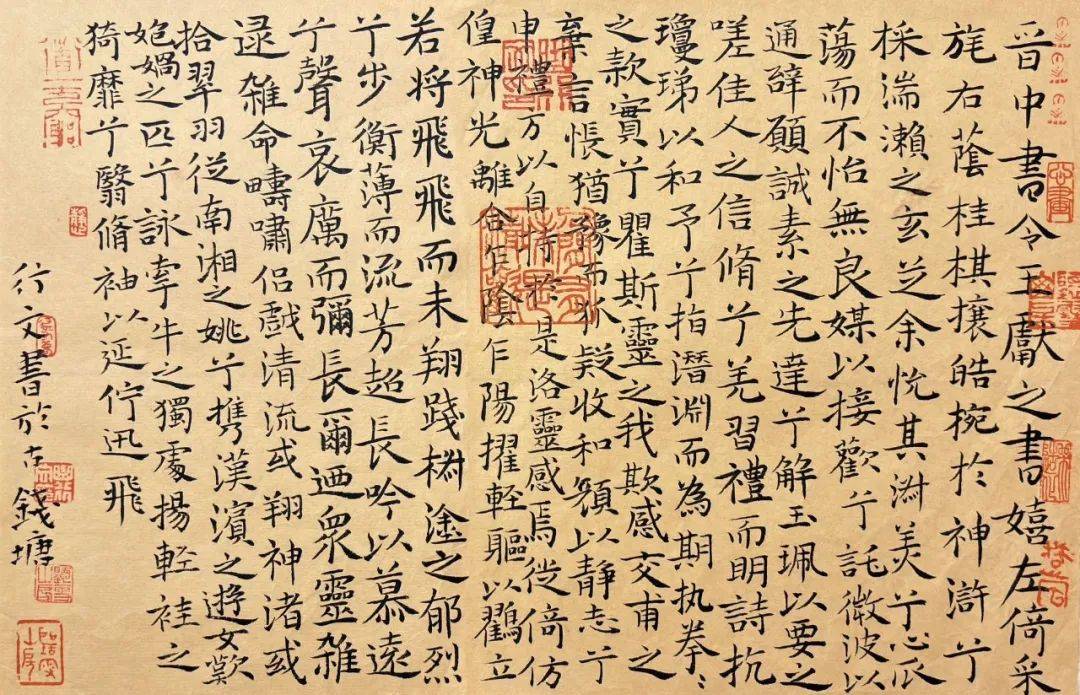 晋中書令王獻之書嬉左倚采
旄右蔭桂棋攘皓捥於神滸兮
採湍瀨之玄芝余悅其淑美兮心爪
蕩而不怡無良媒以接歡兮託微波以
通辭願誠素之先達兮解玉珮以要之
嗟佳人之信脩兮羌習禮而明詩抗
瓊珶以和予兮指潛淵而為期执拳〻
之款實兮懼斯靈之我欺感交甫之
棄言悵猶豫而狐疑收和顏以静志兮
申禮方以自持於是洛靈感焉徙倚仿
偟神光離合乍陰乍陽擢輕軀以鶴立
若将飛飛而未翔踐椒塗之郁烈
兮步衡薄而流芳超長吟以慕遠
兮聲哀厲而彌長爾迺眾靈雜
逯雜命疇嘯侶戲清流或翔神渚或
拾翠羽從南湘之姚兮携漢濱之遊女歎
媧之匹兮詠牽牛之獨處揚輕袿之
猗靡兮翳脩袖以延佇迅飛
行文書於古錢塘